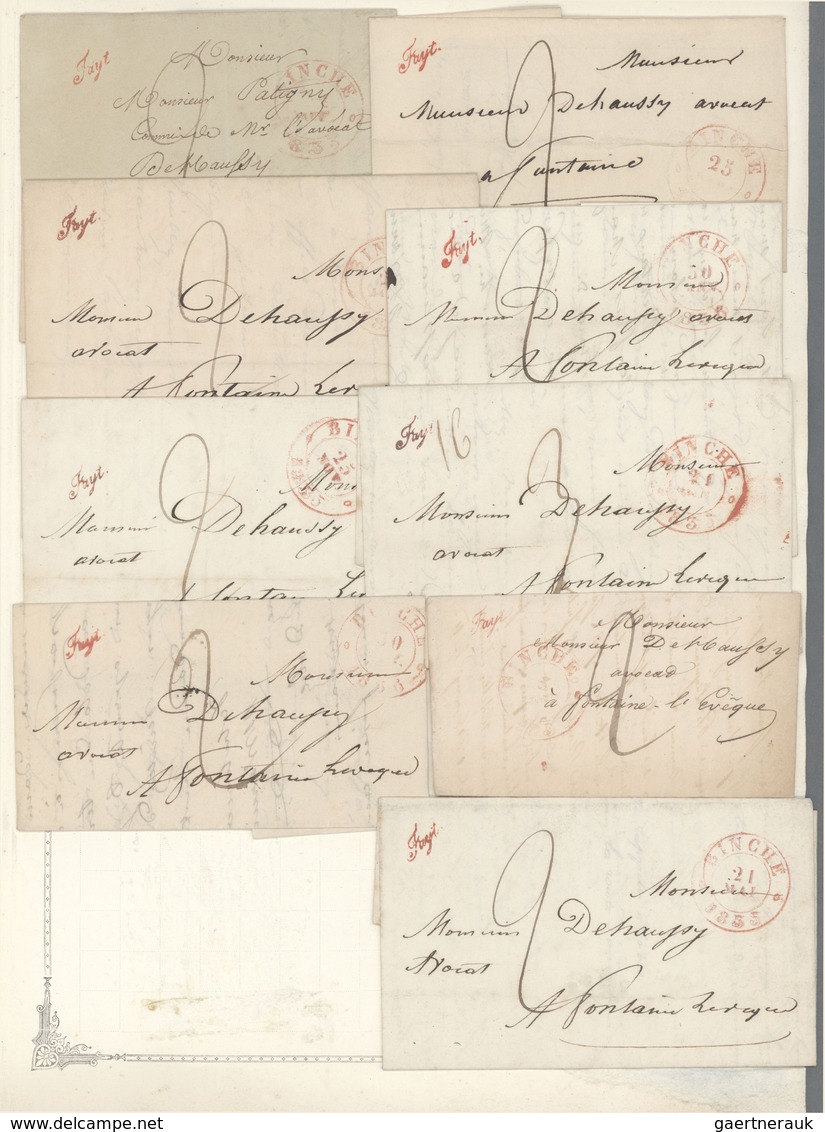 Fayt.
Monsieur
BINCHE
Monsieur Patigny
Commis de Mr. l'avocat
DeHaussy
Fayt.
2
Monsieur
Monsieur Dehaussy avocat
a Fontaine
BINCHE
25
Fayt.
2
BINCHE
Mons
Monsieur Dehaussy
avocat
A Fontaine Leve
Fayt.
2
INCHE
30
Monsieur
Monsieur Dehaussy avocat
A Fontaine Leveque
Fayt.
2
BIN
25
NOV
Mons
Monsieur Dehaussy
avocat
Fontaine Le
Fayt
16
3
BINCHE
21
Monsieur
Monsieur Dehaussy
avocat
A Fontaine Leveque
Fayt.
2
BINCHE
Monsieur
Monsieur Dehaussy
avocat
A Fontaine Leveque
Fayt.
BINCHE
2
Monsieur
Monsieur DeHaussy
avocad
à Fontaine-l'Evêque
Fayt.
2
BINCHE
21
MAI
1835
Monsieur
Monsieur Dehaussy
Avocat
A Fontaine Leveque
gaertnerauk